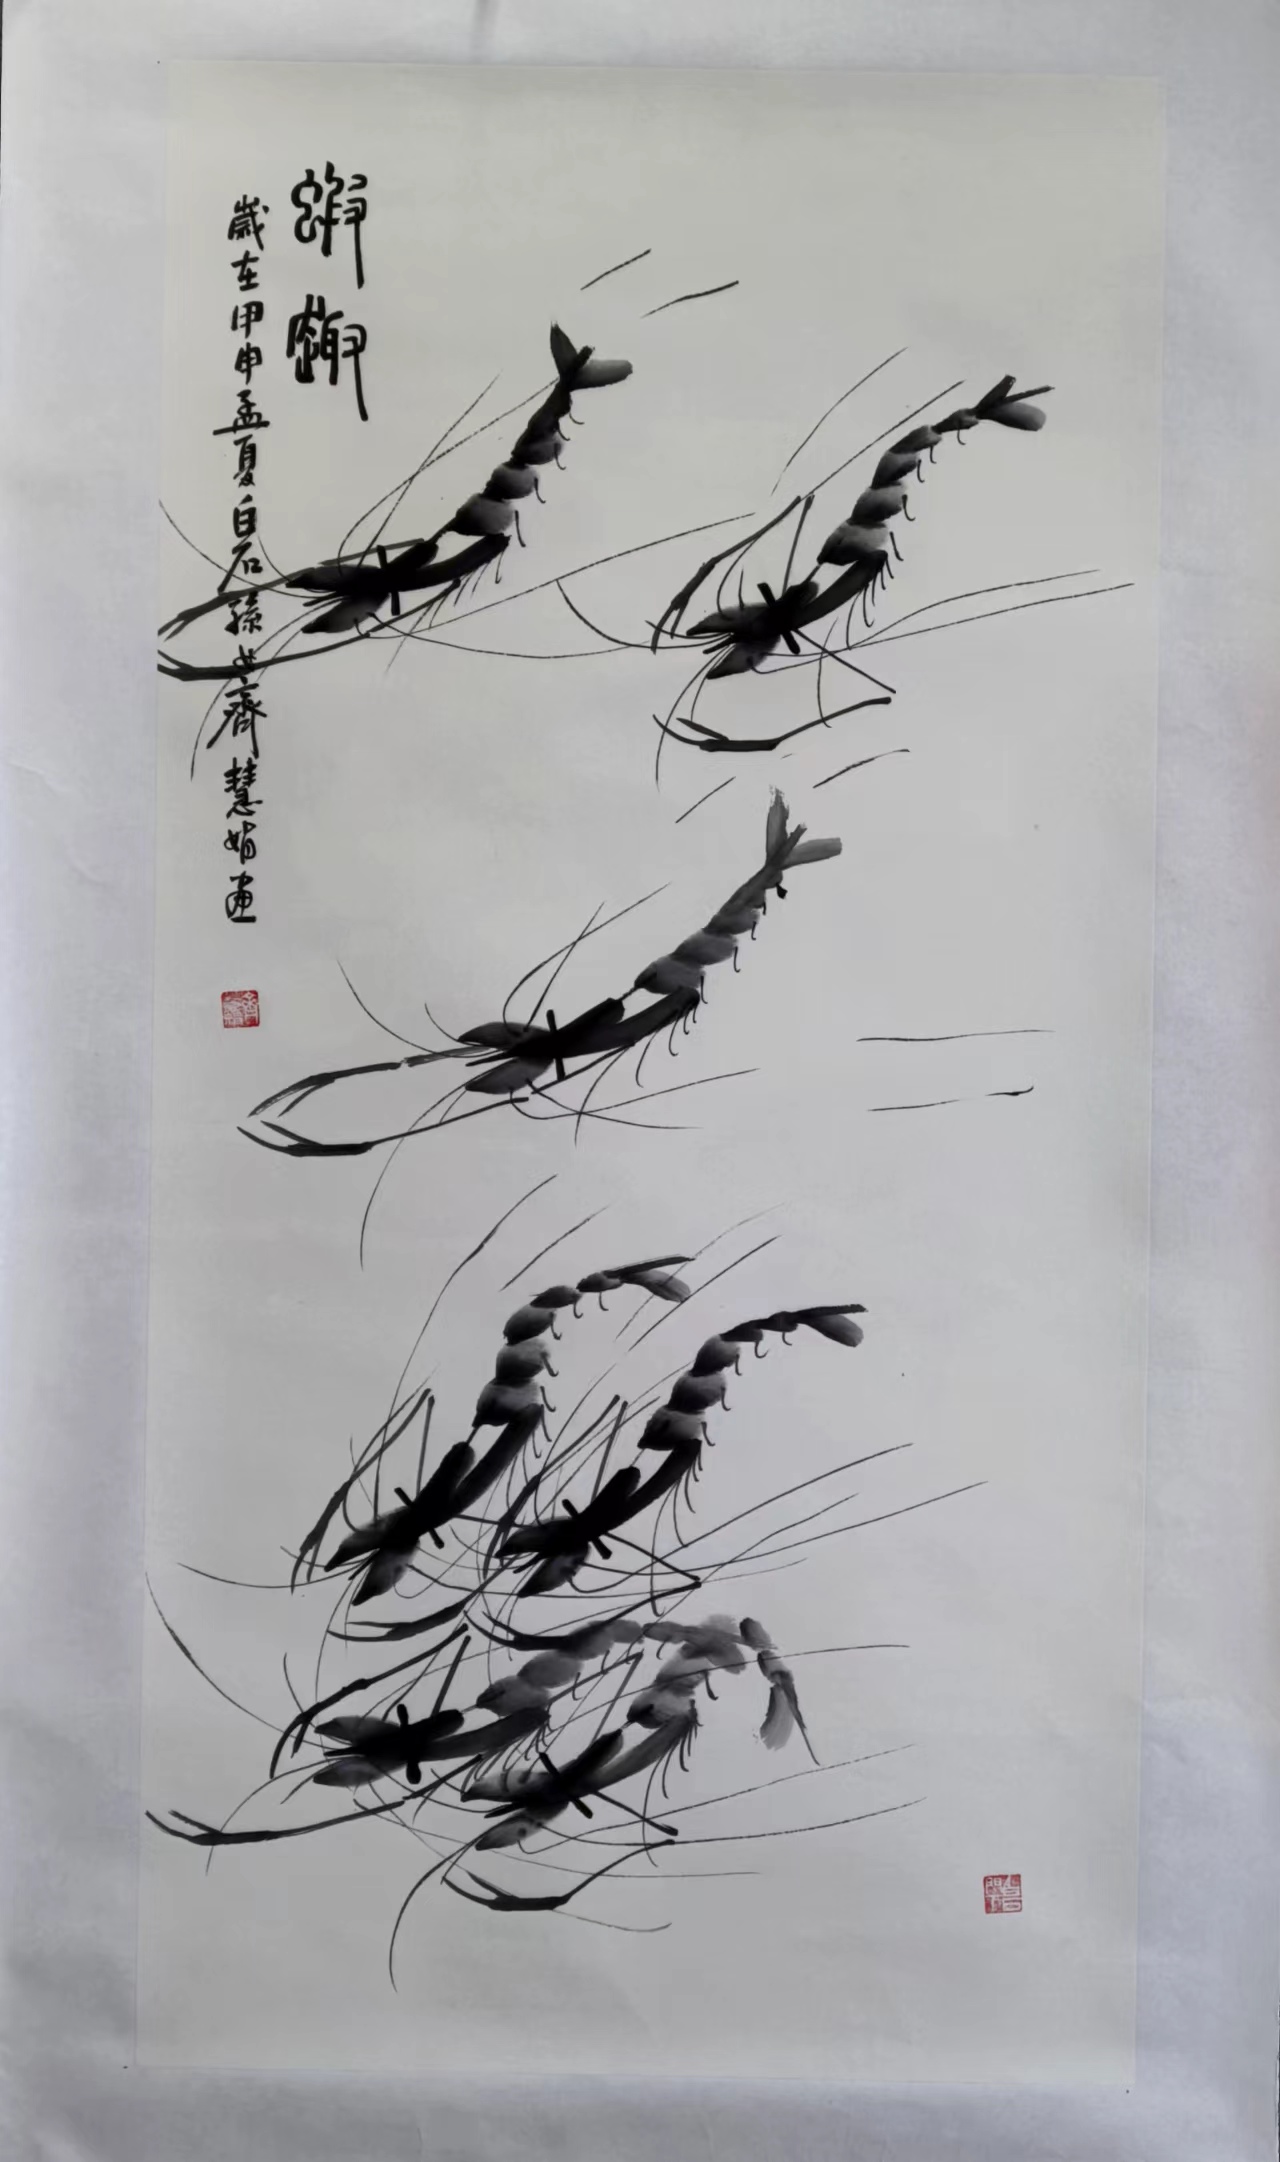 蝦趣
歲在甲申孟夏白石孫女齊慧娟畫